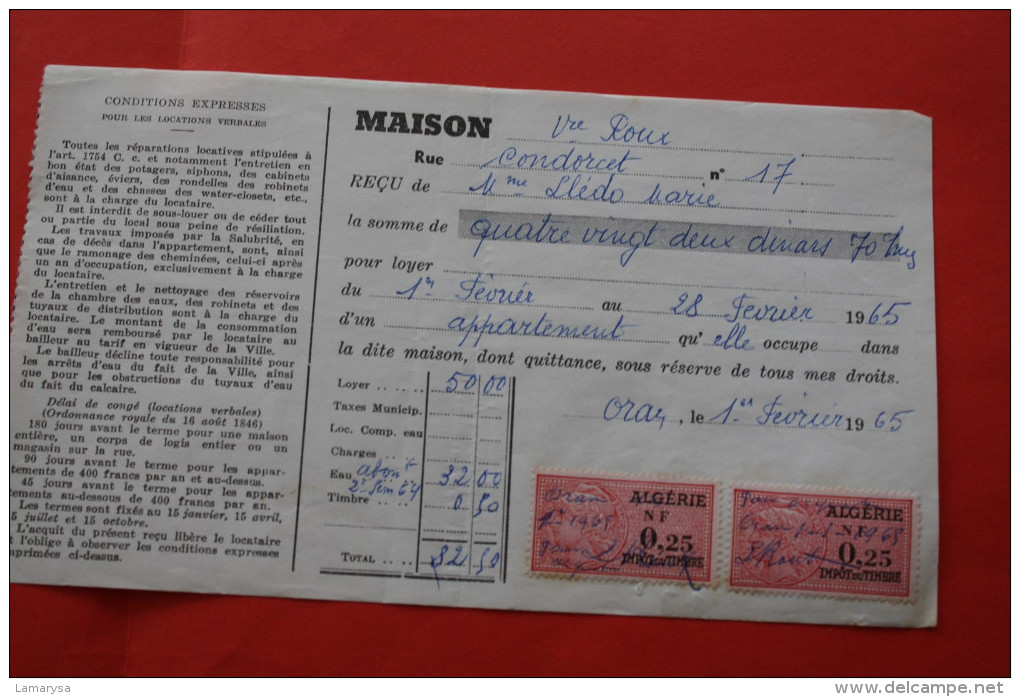 CONDITIONS EXPRESSES
POUR LES LOCATIONS VERBALES
Toutes les réparations locatives stipulées à
l'art. 1754 C. c. et notamment l'entretien en
bon état des potagers, siphons, des cabinets
d'aisance, éviers, des rondelles des robinets
d'eau et des chasses des water-closets, etc.,
sont à la charge du locataire.
Il est interdit de sous-louer ou de céder tout
ou partie du local sous peine de résiliation.
Les travaux imposés par la Salubrité, en
cas de décès dans l'appartement, sont, ainsi
que le ramonage des cheminées, celui-ci après
un an d'occupation, exclusivement à la charge
du locataire.
L'entretien et le nettoyage des réservoirs
de la chambre des eaux, des robinets et des
tuyaux de distribution sont à la charge du
locataire. Le montant de la consommation
d'eau sera remboursé par le locataire au
bailleur au tarif en vigueur de la Ville.
Le bailleur décline toute responsabilité pour
les arrêts d'eau du fait de la Ville, ainsi
que pour les obstructions du tuyaux d'eau
du fait du calcaire.
Délai de congé (locations verbales)
(Ordonnance royale du 16 août 1846)
180 jours avant le terme pour une maison
entière, un corps de logis entier ou un
magasin sur la rue.
90 jours avant le terme pour les appar-
tements de 400 francs par an et au-dessus.
45 jours avant le terme pour les appar-
tements au-dessous de 400 francs par an.
Les termes sont fixés au 15 janvier, 15 avril,
5 juillet et 15 octobre.
L'acquit du présent reçu libère le locataire
et l'oblige à observer les conditions expresses
mprimées ci-dessus.
MAISON Vve Roux
Rue Condorcet n° 17
REÇU de Mme Llédo Marie
la somme de quatre vingt deux dinars 70
pour loyer
du 1er Février au 28 Fevrier 1965
d'un appartement qu'elle occupe dans
la dite maison, dont quittance, sous réserve de tous mes droits.
Oran, le 1er Février 1965
Loyer 50 00
Taxes Municip.
Loc. Comp. eau
Charges
Eau abont 32 00
2e Sem 64
Timbre 0 50
TOTAL 82 50
Oran
ALGÉRIE
NF
1965
0,25
IMPÔT DU TIMBRE
ALGÉRIE
NF
Oran 1965
0,25
Roux
IMPÔT DU TIMBRE
Lamarysa
www.delcampe.net